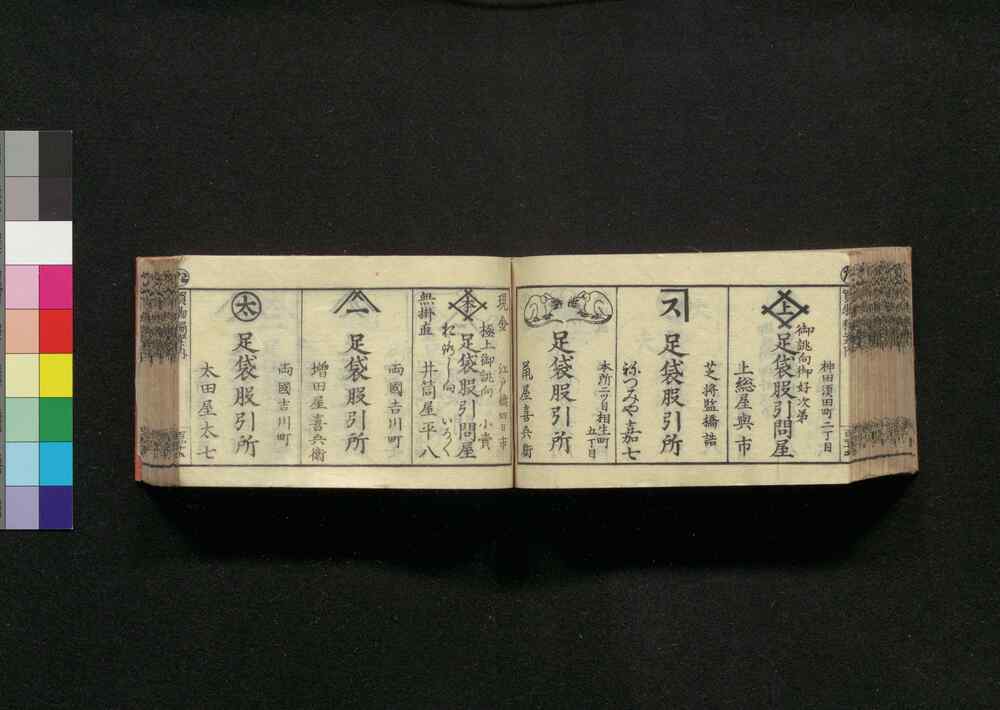 神田須田町二丁目
御誂向御好次第
上
足袋股引問屋
上総屋與市
芝将監橋詰
ス
足袋股引所
つみや嘉七
本所二ツ目相生町
五丁目
足袋股引所
屋喜兵衛
現金
江戸橋四日市
極上御誂向
小賣
本
足袋股引問屋
いろ〳〵
無掛直
井筒屋平八
両國吉川町
一
足袋股引所
増田屋喜兵衛
両國吉川町
太
足袋股引所
太田屋太七